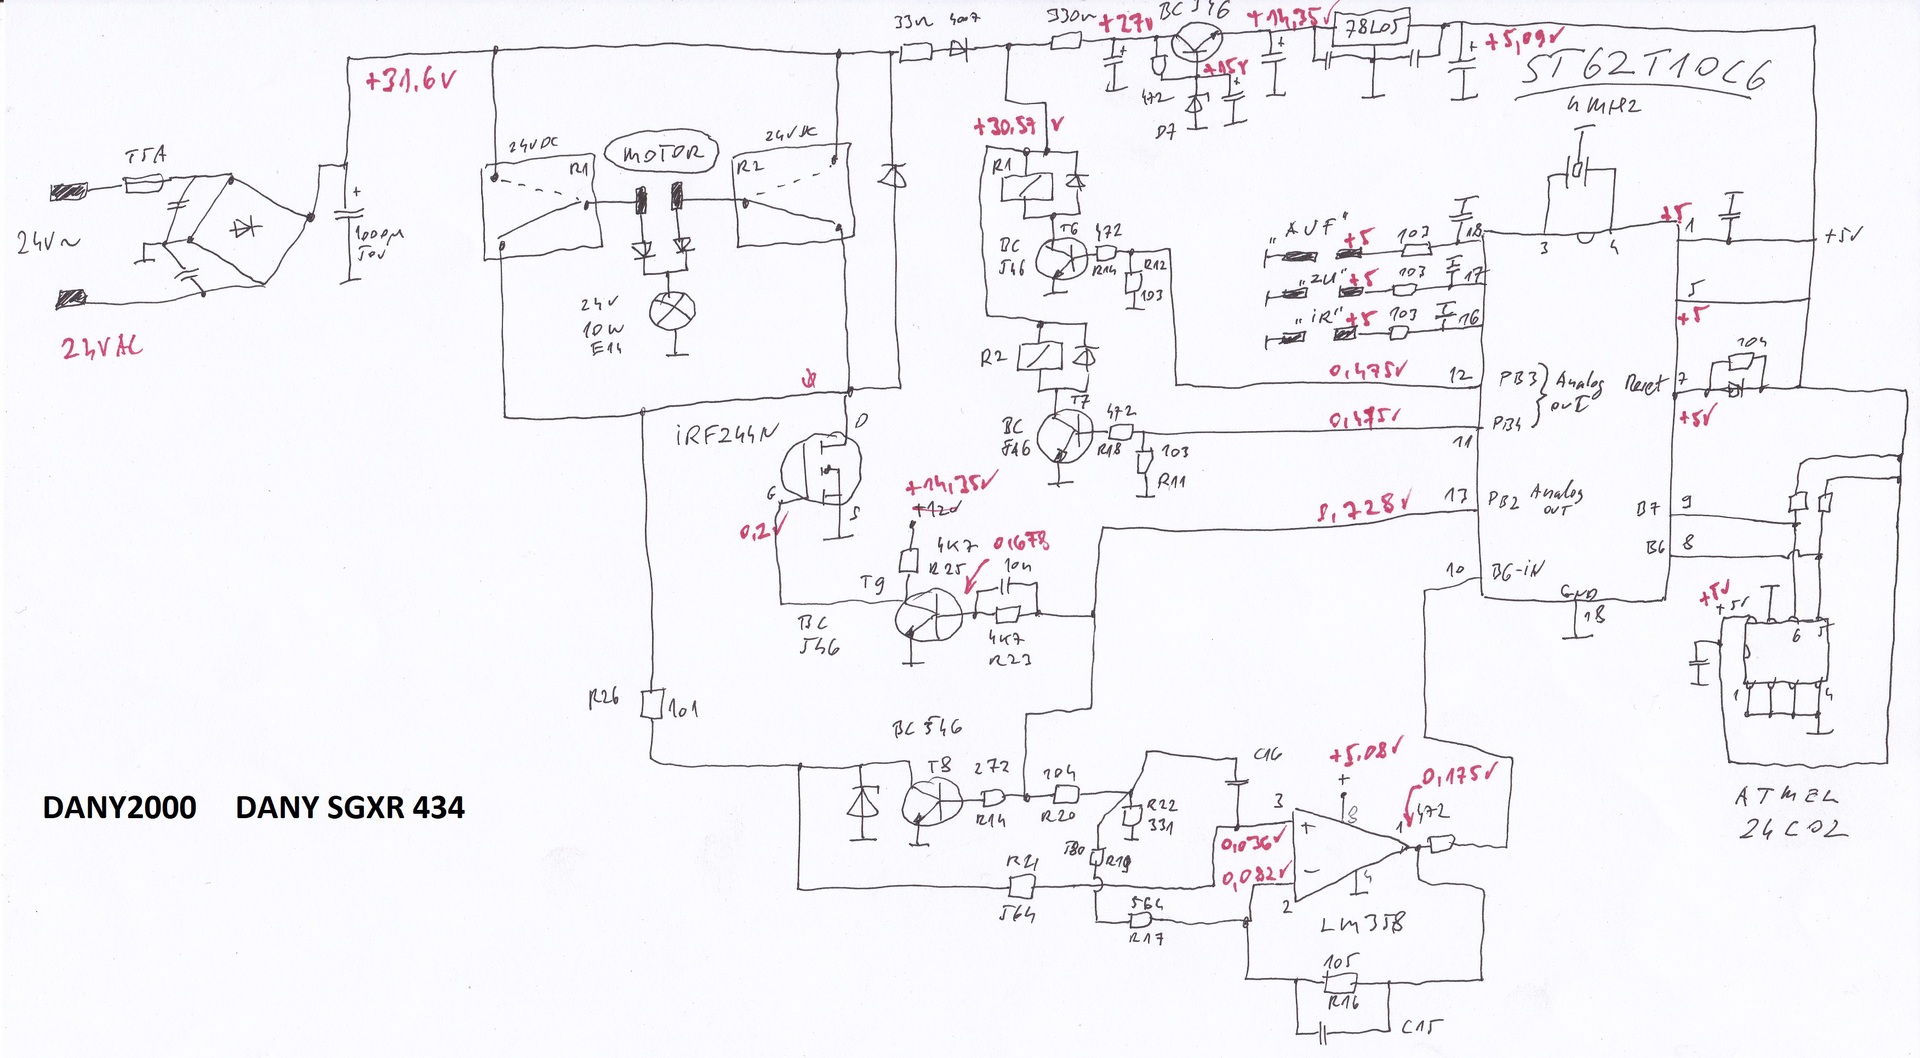 33Ω 4007
330Ω
+27V
BC 546
+14,35V
78L05
+5,09V
ST62T10C6
4MHz
+31,6V
T5A
24V~
24VAC
+
1000µ
50V
24VDC
R1
MOTOR
24VDC
R2
24V
10W
E14
472
+15V
D7
+30,57 V
R1
BC
546
T6
472
R14
R12
103
R2
BC
546
T7
472
R18
103
R11
"AUF" +5 103 18
"ZU" +5 103 17
"iR" +5 103 16
3 4
+5 1
+5V
5
+5
0,475V 12 PB3
0,475V 11 PB4
Analog
OUT
Reset 7
104
+5V
13 PB2 Analog
OUT
B7 9
B6 8
10 B6-iN
GND
18
iRF244N
D
G
S
0,2V
+14,35V
+12V
4K7
R25
0,678
10n
T9
BC
546
4K7
R23
R26
101
BC 546
T8
272
R14
104
R20
R22
331
R19
C16
R21
564
564
R17
+5,08V
+
8
3
+
0,036V
0,082V
-
2
1
4
0,175V
472
LM358
105
R16
C15
+5V
+5V
6 5
1 4
ATMEL
24C02
DANY2000 DANY SGXR 434